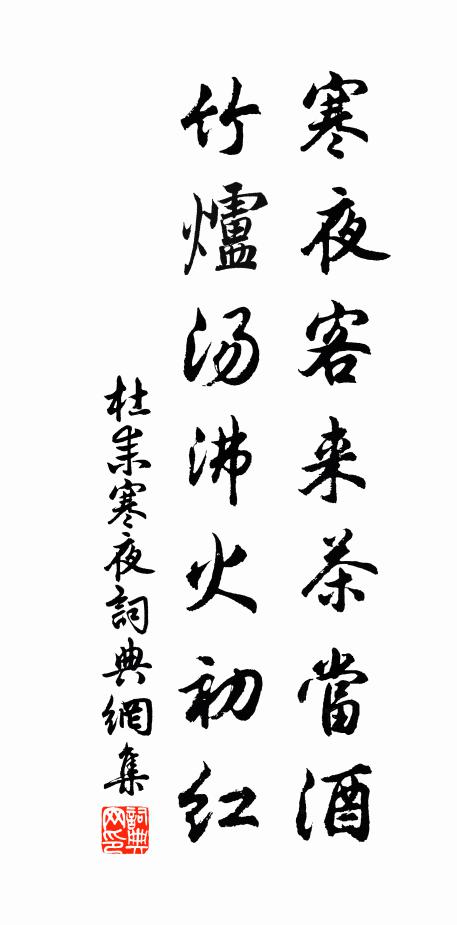 寒夜客来茶當酒
竹爐汤沸火初红
杜耒寒夜詞典網集
詞典网印